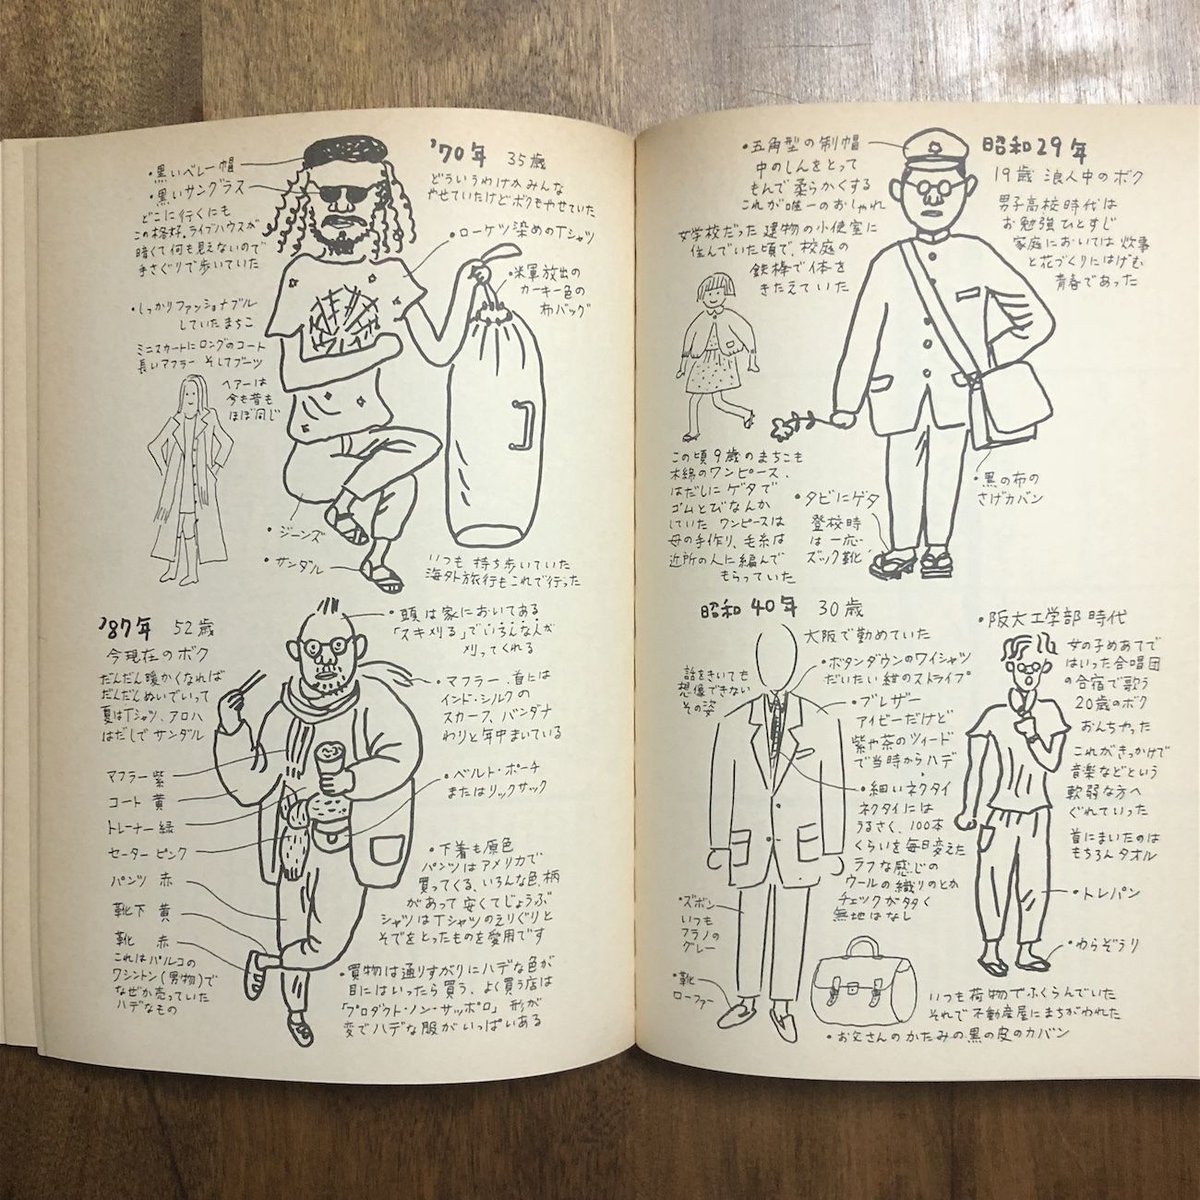 昭和29年
19歳 浪人中のボク
男子高校時代は
お勉強ひとすじ
家庭においては 炊事
と花づくりにはげむ
青春であった
・五角型の制帽
中のしんをとって
もんで柔らかくする
これが唯一のおしゃれ
女学校だった建物の小使室に
住んでいた頃で、校庭の
鉄棒で体を
きたえていた
この頃9歳のまちこも
木綿のワンピース、
はだしにゲタで
ゴムとびなんか
していた ワンピースは
母の手作り、毛糸は
近所の人に編んで
もらっていた
・タビにゲタ
登校時
は一応
ズック靴
・黒の布の
さげカバン
昭和40年 30歳
大阪で勤めていた
・ボタンダウンのワイシャツ
だいたい紺のストライプ
話をきいても
想像できない
その姿
・ブレザー
アイビーだけど
紫や茶のツィード
で当時からハデ
・細いネクタイ
ネクタイには
うるさく、100本
くらいを毎日変えた
ラフな感じの
ウールの織りのとか
チェックが多く
無地はなし
・ズボン
いつも
フラノの
グレー
・靴
ローファー
いつも荷物でふくらんでいた
それで不動産屋にまちがわれた
・お父さんのかたみの黒の皮のカバン
・阪大工学部時代
女の子めあてで
はいった合唱団
の合宿で歌う
20歳のボク
おんちやった
これがきっかけで
音楽などという
軟弱な方へ
ぐれていった
首にまいたのは
もちろんタオル
・トレパン
・わらぞうり
'70年 35歳
どういうわけかみんな
やせていたけどボクもやせていた
・黒いベレー帽
・黒いサングラス
どこに行くにも
この格好。ライブハウスが
暗くて何も見えないので
手さぐりで歩いていた
・ローケツ染めのTシャツ
・米軍放出の
カーキー色の
布バッグ
・しっかりファッショナブル
していたまちこ
ミニスカートにロングのコート
長いマフラー そしてブーツ
ヘアーは
今も昔も
ほぼ同じ
・ジーンズ
・サンダル
いつも持ち歩いていた
海外旅行もこれで行った
'87年 52歳
今現在のボク
だんだん暖かくなれば
だんだんぬいでいって
夏はTシャツ、アロハ
はだしでサンダル
・頭は家においてある
「スキメリる」でいろんな人が
刈ってくれる
・マフラー、首には
インド・シルクの
スカーフ、バンダナ
わりと年中まいている
・ベルト・ポーチ
またはリックサック
マフラー 紫
コート 黄
トレーナー 緑
セーター ピンク
パンツ 赤
靴下 黄
靴 赤
これはパルコの
ワシントン(男物)で
なぜか売っていた
ハデなもの
・下着も原色
パンツはアメリカで
買ってくる、いろんな色、柄
があって安くてじょうぶ
シャツはTシャツのえりぐりと
そでをとったものを愛用です
・買物は通りすがりにハデな色が
目にはいったら買う、よく買う店は
「プロダクト・ノン・サッポロ」形が
変でハデな服がいっぱいある